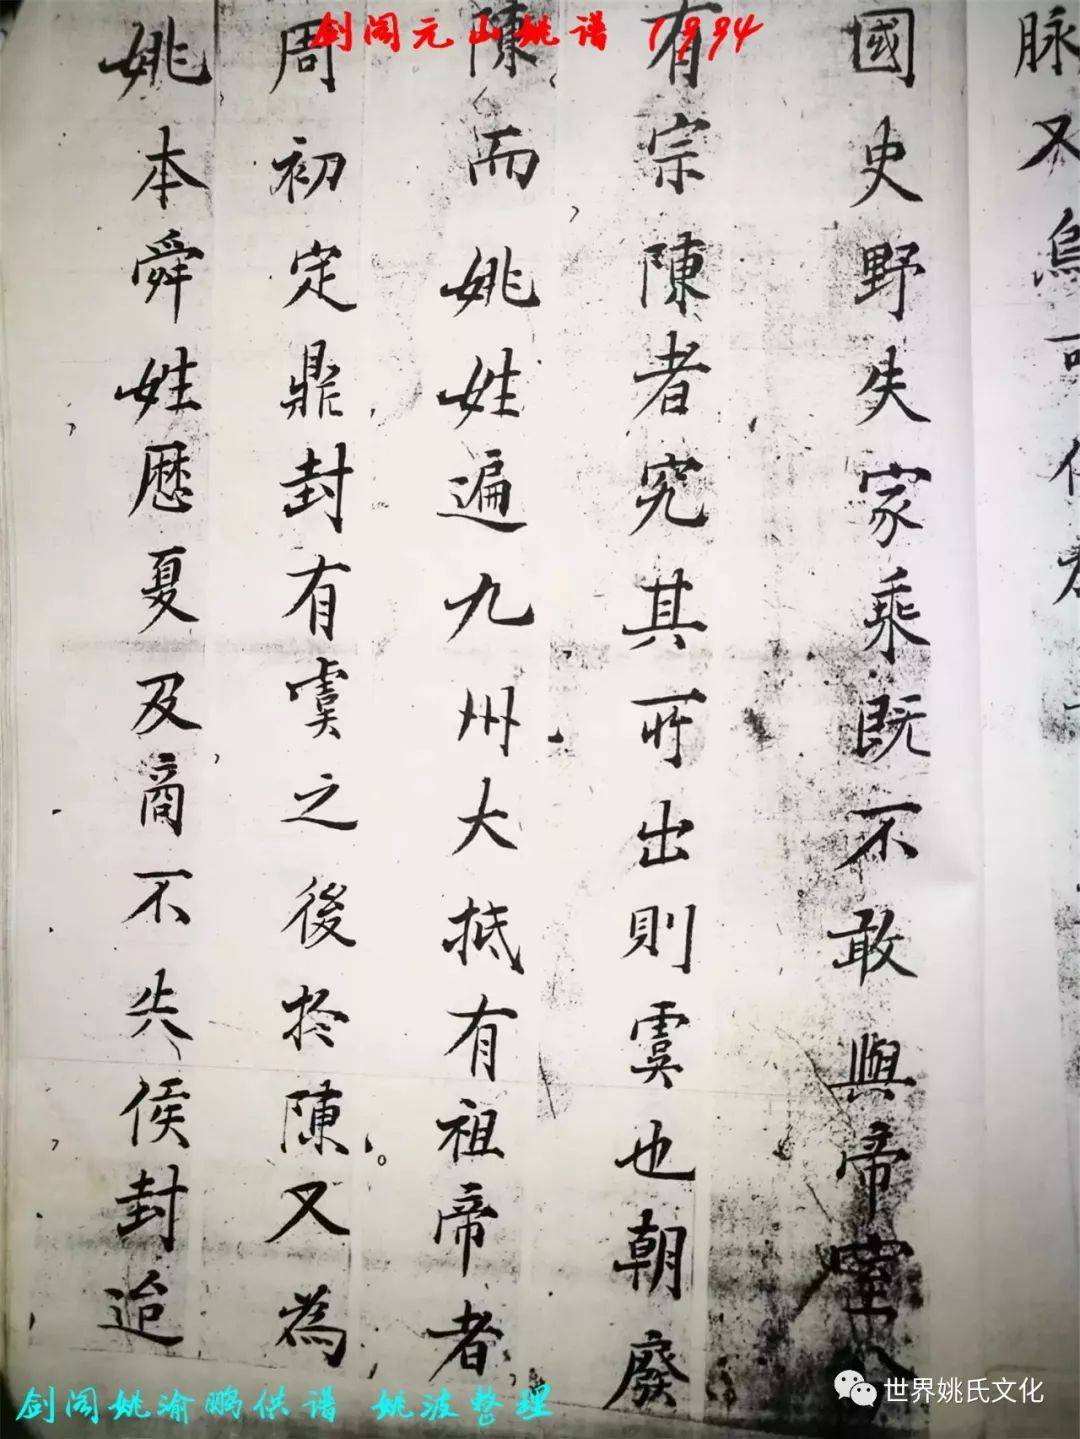 剑阁元山姚谱 1994
脉又烏可
國史野失家乘既不敢與帝室
有宗陳者究其所出則虞也朝廢
陳而姚姓遍九州大抵有祖帝者
周初定鼎封有虞之後於陳又為
姚本舜姓歴夏及商不失侯封迨
剑阁姚渝鹏供谱 姚波整理
世界姚氏文化